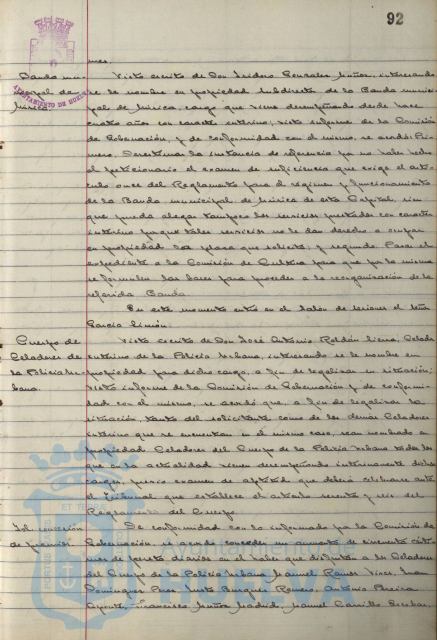 92
mes.
Banda mu-
nicipal de
Música.
Visto escrito de Don Isidoro Gonzalez Muñoz, interesando
se le nombre en propiedad Subdirector de la Banda munici-
pal de Música, cargo que viene desempeñando desde hace
cuatro años con caracter interino; visto informe de la Comisión
de Gobernación, y de conformidad con el mismo, se acordó: Pri-
mero. Desestimar la instancia de referencia por no haber
el peticionario el examen de suficiencia que exige el artí-
culo once del Reglamento para el régimen y funcionamiento
de la Banda municipal de Música de esta Capital, sin
que pueda alegar tampoco los servicios prestados con caracter
interino porque tales servicios no le dan derecho a ocupar
en propiedad la plaza que solicita; y segundo. Pasar el
expediente a la Comisión de Cultura para que por la misma
se formulen las bases para proceder a la reorganización de la
referida Banda.
En este momento entra en el Salón de sesiones el Señor
García Limón.
Cuerpo de
Celadores de
la Policía Ur-
bana.
Visto escrito de Don José Antonio Roldán Viera, Celador
interino de la Policía Urbana, interesando se le nombre en
propiedad para dicho cargo, a fin de legalizar su situación;
visto informe de la Comisión de Gobernación y de conformi-
dad con el mismo, se acordó que, a fin de legalizar la
situación, tanto del solicitante como de los demas Celadores
interinos que se encuentran en el mismo caso, sean nombrados en
propiedad Celadores del Cuerpo de la Policía Urbana todos los
que en la actualidad vienen desempeñando interinamente dichos
cargos, previo examen de aptitud que deberá celebrarse ante
el Tribunal que establece el artículo sesenta y seis del
Reglamento del Cuerpo.
Id. concesión
de premios
De conformidad con lo informado por la Comisión de
Gobernación, se acordó conceder un aumento de cincuenta cénti-
mos de peseta diarios en el haber que disfrutan a los Celadores
del Cuerpo de la Policía Urbana Manuel Ramos Vives, Juan
Dominguez Perez, Justo Burgues Romero, Antonio Pereira
Aponte, Francisco Muñoz Madrid, Manuel Carrillo Escobar,